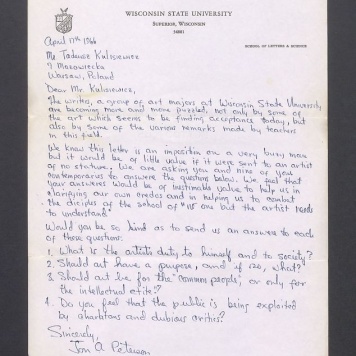 WISCONSIN STATE UNIVERSITY
SUPERIOR, WISCONSIN
54881
SCHOOL OF LETTERS & SCIENCE
April 17th 1966
Mr Tadeusz Kulisiewicz
7 Mazowiecka
Warsaw, Poland
Dear Mr. Kulisiewicz,
The writers, a group of art majors at Wisconsin State University,
are becoming more and more puzzled, not only by some of
the art which seems to be finding acceptance today, but
also by some of the various remarks made by teachers
in this field.
We know this letter is an imposition on a very busy man
but it would be of little value if it were sent to an artist
of no stature. We are asking you and nine of your
contemporaries to answer the question below. We feel that
your answers would be of inestimable value to help us in
clarifying our own credos and in helping us to combat
the disciples of the school of "no one but the artist needs
to understand"
Would you be so kind as to send us an answer to each
of these questions.
1. What is the artists duty to himself and to society?
2. Should art have a purpose, and if so, what?
3. Should art be for the "common people", or only for
the intellectual elite?
4. Do you feel that the public is being exploited
by charlatans and dubious critics?
Sincerely,
Jon A. Peterson